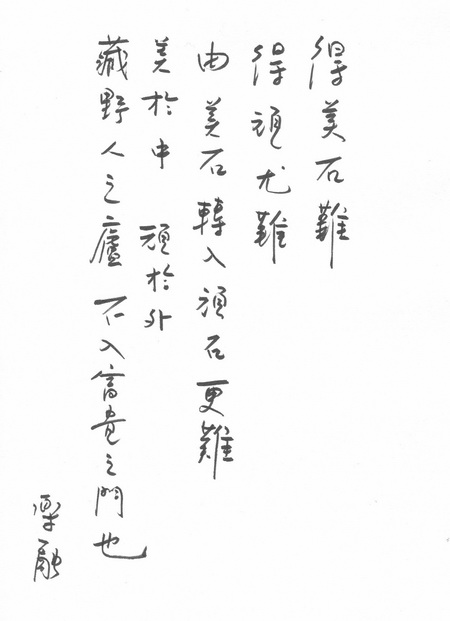 得美石難
得頑尤難
由美石轉入頑石更難
美於中 頑於外
藏野人之廬 不入富貴之門也